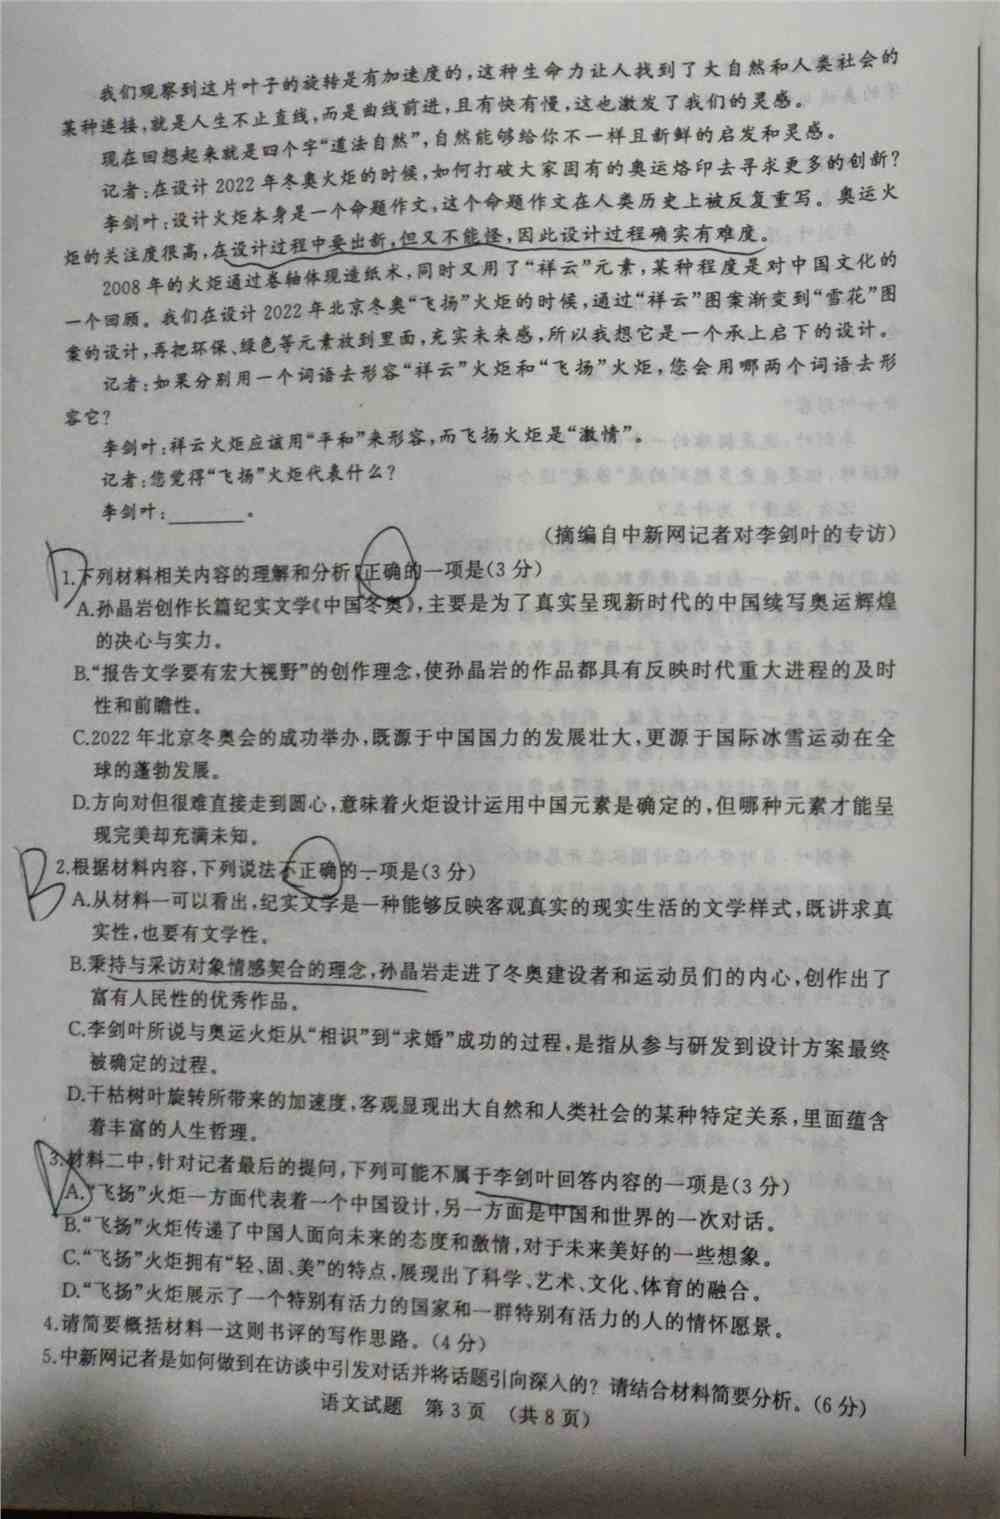 我们观察到这片叶子的旋转是有加速度的，这种生命力让人找到了大自然和人类社会的
某种连接，就是人生不止直线，而是曲线前进，且有快有慢，这也激发了我们的灵感。
现在回想起来就是四个字“道法自然”，自然能够给你不一样且新鲜的启发和灵感。
记者：在设计2022年冬奥火炬的时候，如何打破大家固有的奥运烙印去寻求更多的创新？
李剑叶：设计火炬本身是一个命题作文，这个命题作文在人类历史上被反复重写。奥运火
炬的关注度很高，在设计过程中要出新，但又不能怪，因此设计过程确实有难度。
2008年的火炬通过卷轴体现造纸术，同时又用了“祥云”元素，某种程度是对中国文化的
一个回顾。我们在设计2022年北京冬奥“飞扬”火炬的时候，通过“祥云”图案渐变到“雪花”图
案的设计，再把环保、绿色等元素放到里面，充实未来感，所以我想它是一个承上启下的设计。
记者：如果分别用一个词语去形容“祥云”火炬和“飞扬”火炬，您会用哪两个词语去形
容它？
李剑叶：祥云火炬应该用“平和”来形容，而飞扬火炬是“激情”。
记者：您觉得“飞扬”火炬代表什么？
李剑叶：________。
（摘编自中新网记者对李剑叶的专访）
D
1.下列材料相关内容的理解和分析，正确的一项是（3分）
A.孙晶岩创作长篇纪实文学《中国冬奥》，主要是为了真实呈现新时代的中国续写奥运辉煌
的决心与实力。
B.“报告文学要有宏大视野”的创作理念，使孙晶岩的作品都具有反映时代重大进程的及时
性和前瞻性。
C.2022年北京冬奥会的成功举办，既源于中国国力的发展壮大，更源于国际冰雪运动在全
球的蓬勃发展。
D.方向对但很难直接走到圆心，意味着火炬设计运用中国元素是确定的，但哪种元素才能呈
现完美却充满未知。
B
2.根据材料内容，下列说法不正确的一项是（3分）
A.从材料一可以看出，纪实文学是一种能够反映客观真实的现实生活的文学样式，既讲求真
实性，也要有文学性。
B.秉持与采访对象情感契合的理念，孙晶岩走进了冬奥建设者和运动员们的内心，创作出了
富有人民性的优秀作品。
C.李剑叶所说与奥运火炬从“相识”到“求婚”成功的过程，是指从参与研发到设计方案最终
被确定的过程。
D.干枯树叶旋转所带来的加速度，客观显现出大自然和人类社会的某种特定关系，里面蕴含
着丰富的人生哲理。
3.材料二中，针对记者最后的提问，下列可能不属于李剑叶回答内容的一项是（3分）
A.“飞扬”火炬一方面代表着一个中国设计，另一方面是中国和世界的一次对话。
B.“飞扬”火炬传递了中国人面向未来的态度和激情，对于未来美好的一些想象。
C.“飞扬”火炬拥有“轻、固、美”的特点，展现出了科学、艺术、文化、体育的融合。
D.“飞扬”火炬展示了一个特别有活力的国家和一群特别有活力的人的情怀愿景。
4.请简要概括材料一这则书评的写作思路。（4分）
5.中新网记者是如何做到在访谈中引发对话并将话题引向深入的？请结合材料简要分析。（6分）
语文试题 第3页 （共8页）